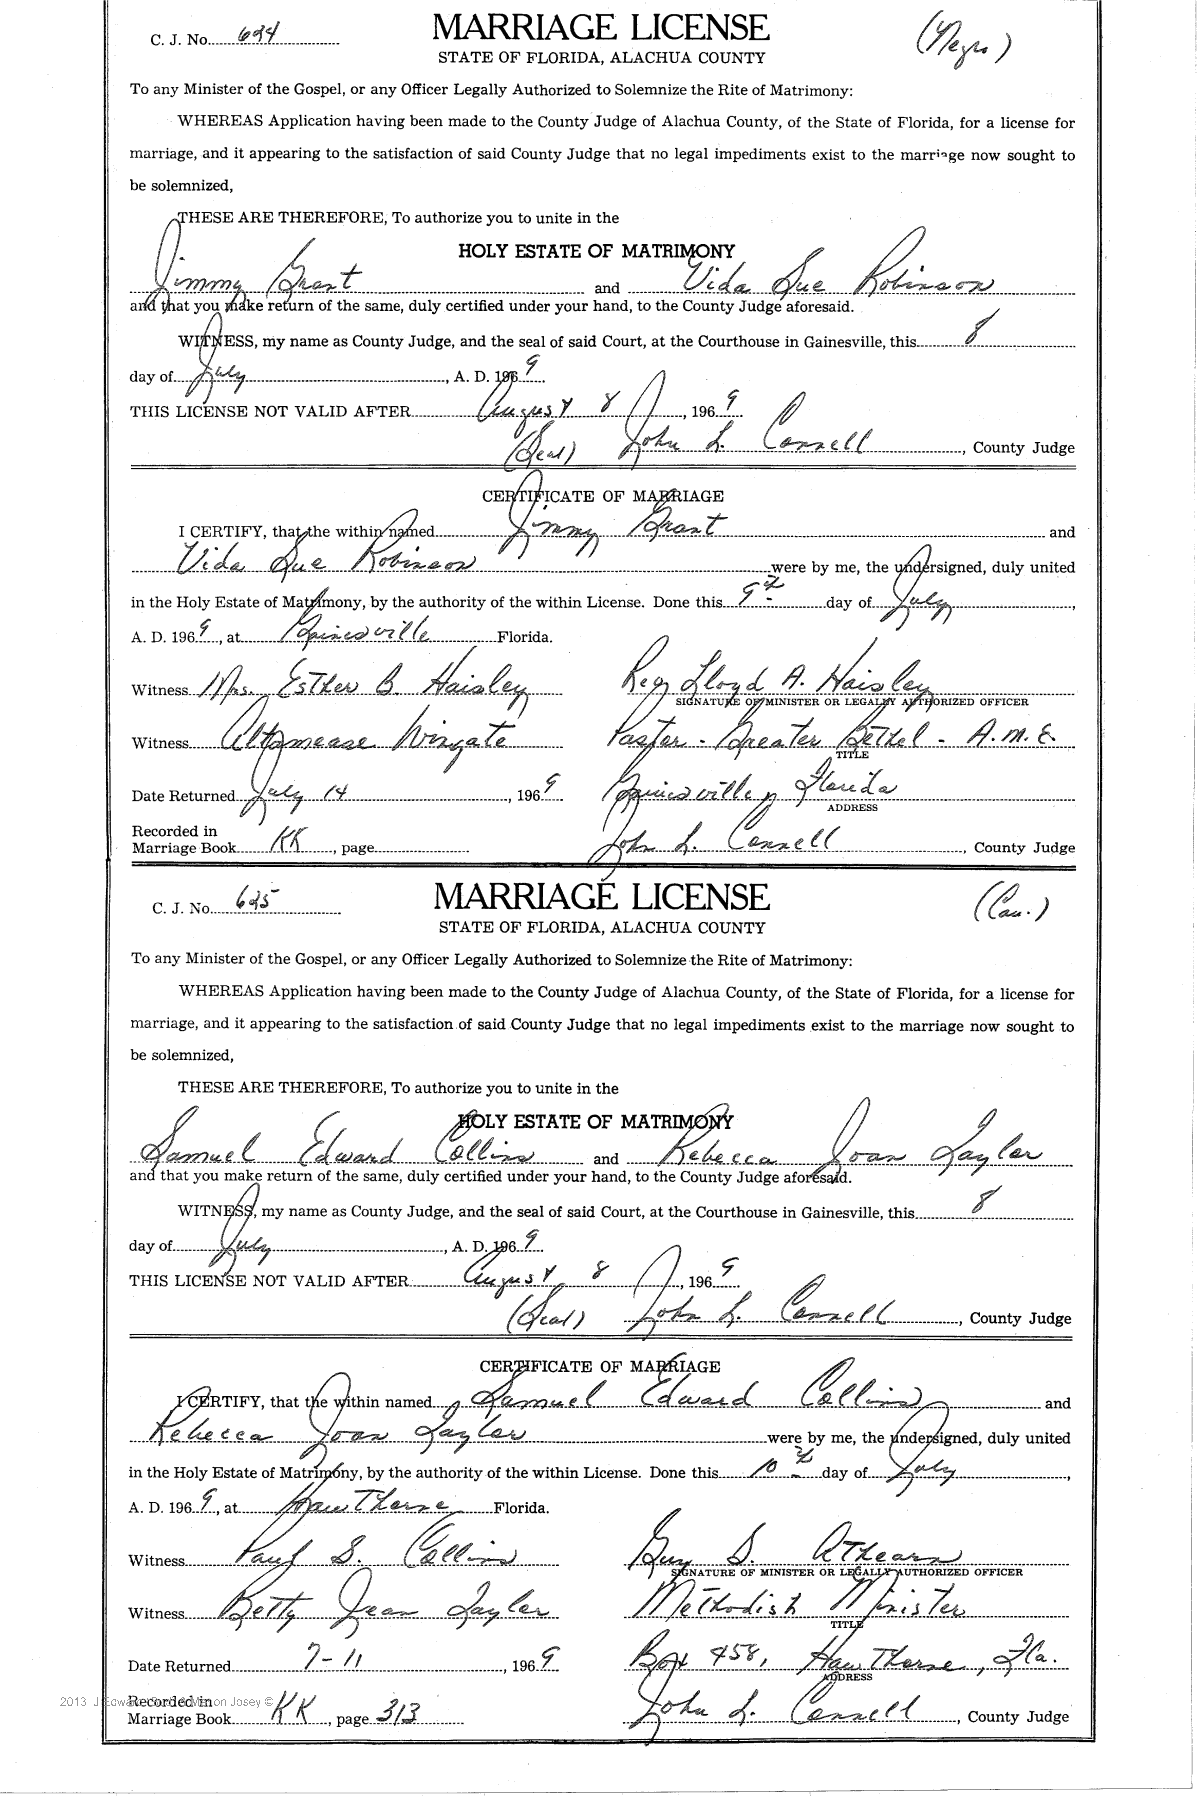 C. J. No. 624
MARRIAGE LICENSE
(Negro)
STATE OF FLORIDA, ALACHUA COUNTY
To any Minister of the Gospel, or any Officer Legally Authorized to Solemnize the Rite of Matrimony:
WHEREAS Application having been made to the County Judge of Alachua County, of the State of Florida, for a license for
marriage, and it appearing to the satisfaction of said County Judge that no legal impediments exist to the marriage now sought to
be solemnized,
THESE ARE THEREFORE, To authorize you to unite in the
HOLY ESTATE OF MATRIMONY
Jimmy Grant and Vida Sue Robinson
and that you make return of the same, duly certified under your hand, to the County Judge aforesaid.
WITNESS, my name as County Judge, and the seal of said Court, at the Courthouse in Gainesville, this 8
day of July, A. D. 1969
THIS LICENSE NOT VALID AFTER August 8, 1969
(Seal) John L. Connell, County Judge
CERTIFICATE OF MARRIAGE
I CERTIFY, that the within named Jimmy Grant and
Vida Sue Robinson were by me, the undersigned, duly united
in the Holy Estate of Matrimony, by the authority of the within License. Done this 9th day of July,
A. D. 1969, at Gainesville Florida.
Witness Mrs. Esther B. Haisley Rev Lloyd A. Haisley
SIGNATURE OF MINISTER OR LEGALLY AUTHORIZED OFFICER
Witness Altamease Wingate Pastor - Greater Bethel - A.M.E.
TITLE
Date Returned July 14, 1969 Gainesville, Florida
ADDRESS
Recorded in
Marriage Book KK, page John L. Connell, County Judge
C. J. No. 625
MARRIAGE LICENSE
(Cau.)
STATE OF FLORIDA, ALACHUA COUNTY
To any Minister of the Gospel, or any Officer Legally Authorized to Solemnize the Rite of Matrimony:
WHEREAS Application having been made to the County Judge of Alachua County, of the State of Florida, for a license for
marriage, and it appearing to the satisfaction of said County Judge that no legal impediments exist to the marriage now sought to
be solemnized,
THESE ARE THEREFORE, To authorize you to unite in the
HOLY ESTATE OF MATRIMONY
Samuel Edward Collins and Rebecca Joan Taylor
and that you make return of the same, duly certified under your hand, to the County Judge aforesaid.
WITNESS, my name as County Judge, and the seal of said Court, at the Courthouse in Gainesville, this 8
day of July, A. D. 1969
THIS LICENSE NOT VALID AFTER August 8, 1969
(Seal) John L. Connell, County Judge
CERTIFICATE OF MARRIAGE
I CERTIFY, that the within named Samuel Edward Collins and
Rebecca Joan Taylor were by me, the undersigned, duly united
in the Holy Estate of Matrimony, by the authority of the within License. Done this 10th day of July,
A. D. 1969, at Hawthorne Florida.
Witness Paul S. Collins Guy S. Athearn
SIGNATURE OF MINISTER OR LEGALLY AUTHORIZED OFFICER
Witness Betty Jean Taylor Methodist Minister
TITLE
Date Returned 7-11, 1969 Box 458, Hawthorne, Fla.
ADDRESS
Recorded in
Marriage Book KK, page 313 John L. Connell, County Judge